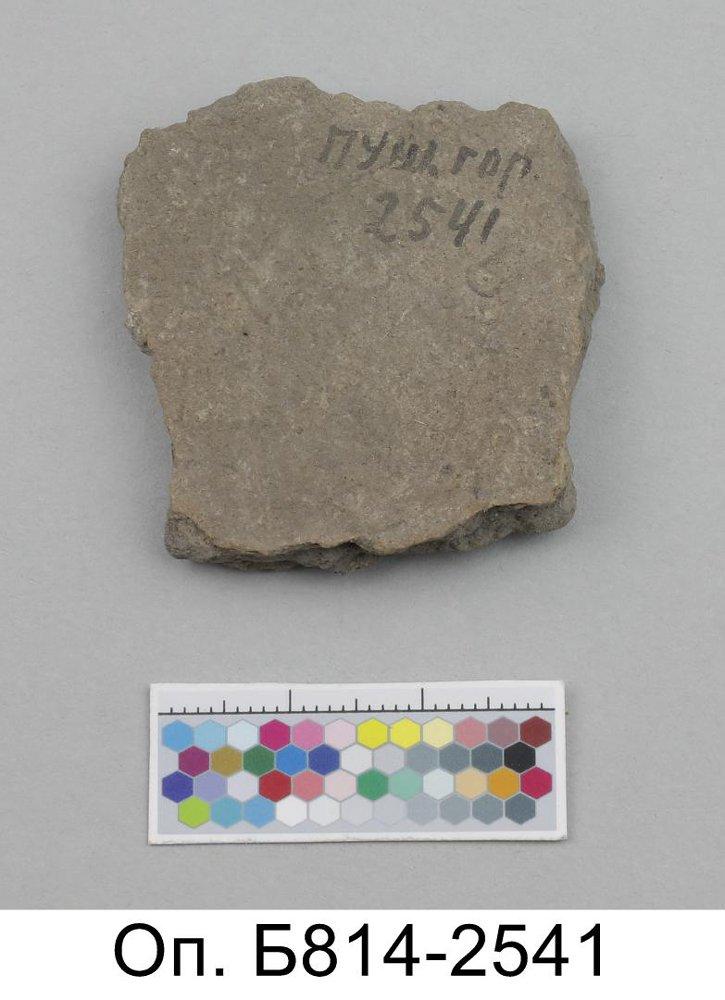 Пушк. гор.
2541
Оп. Б814-2541